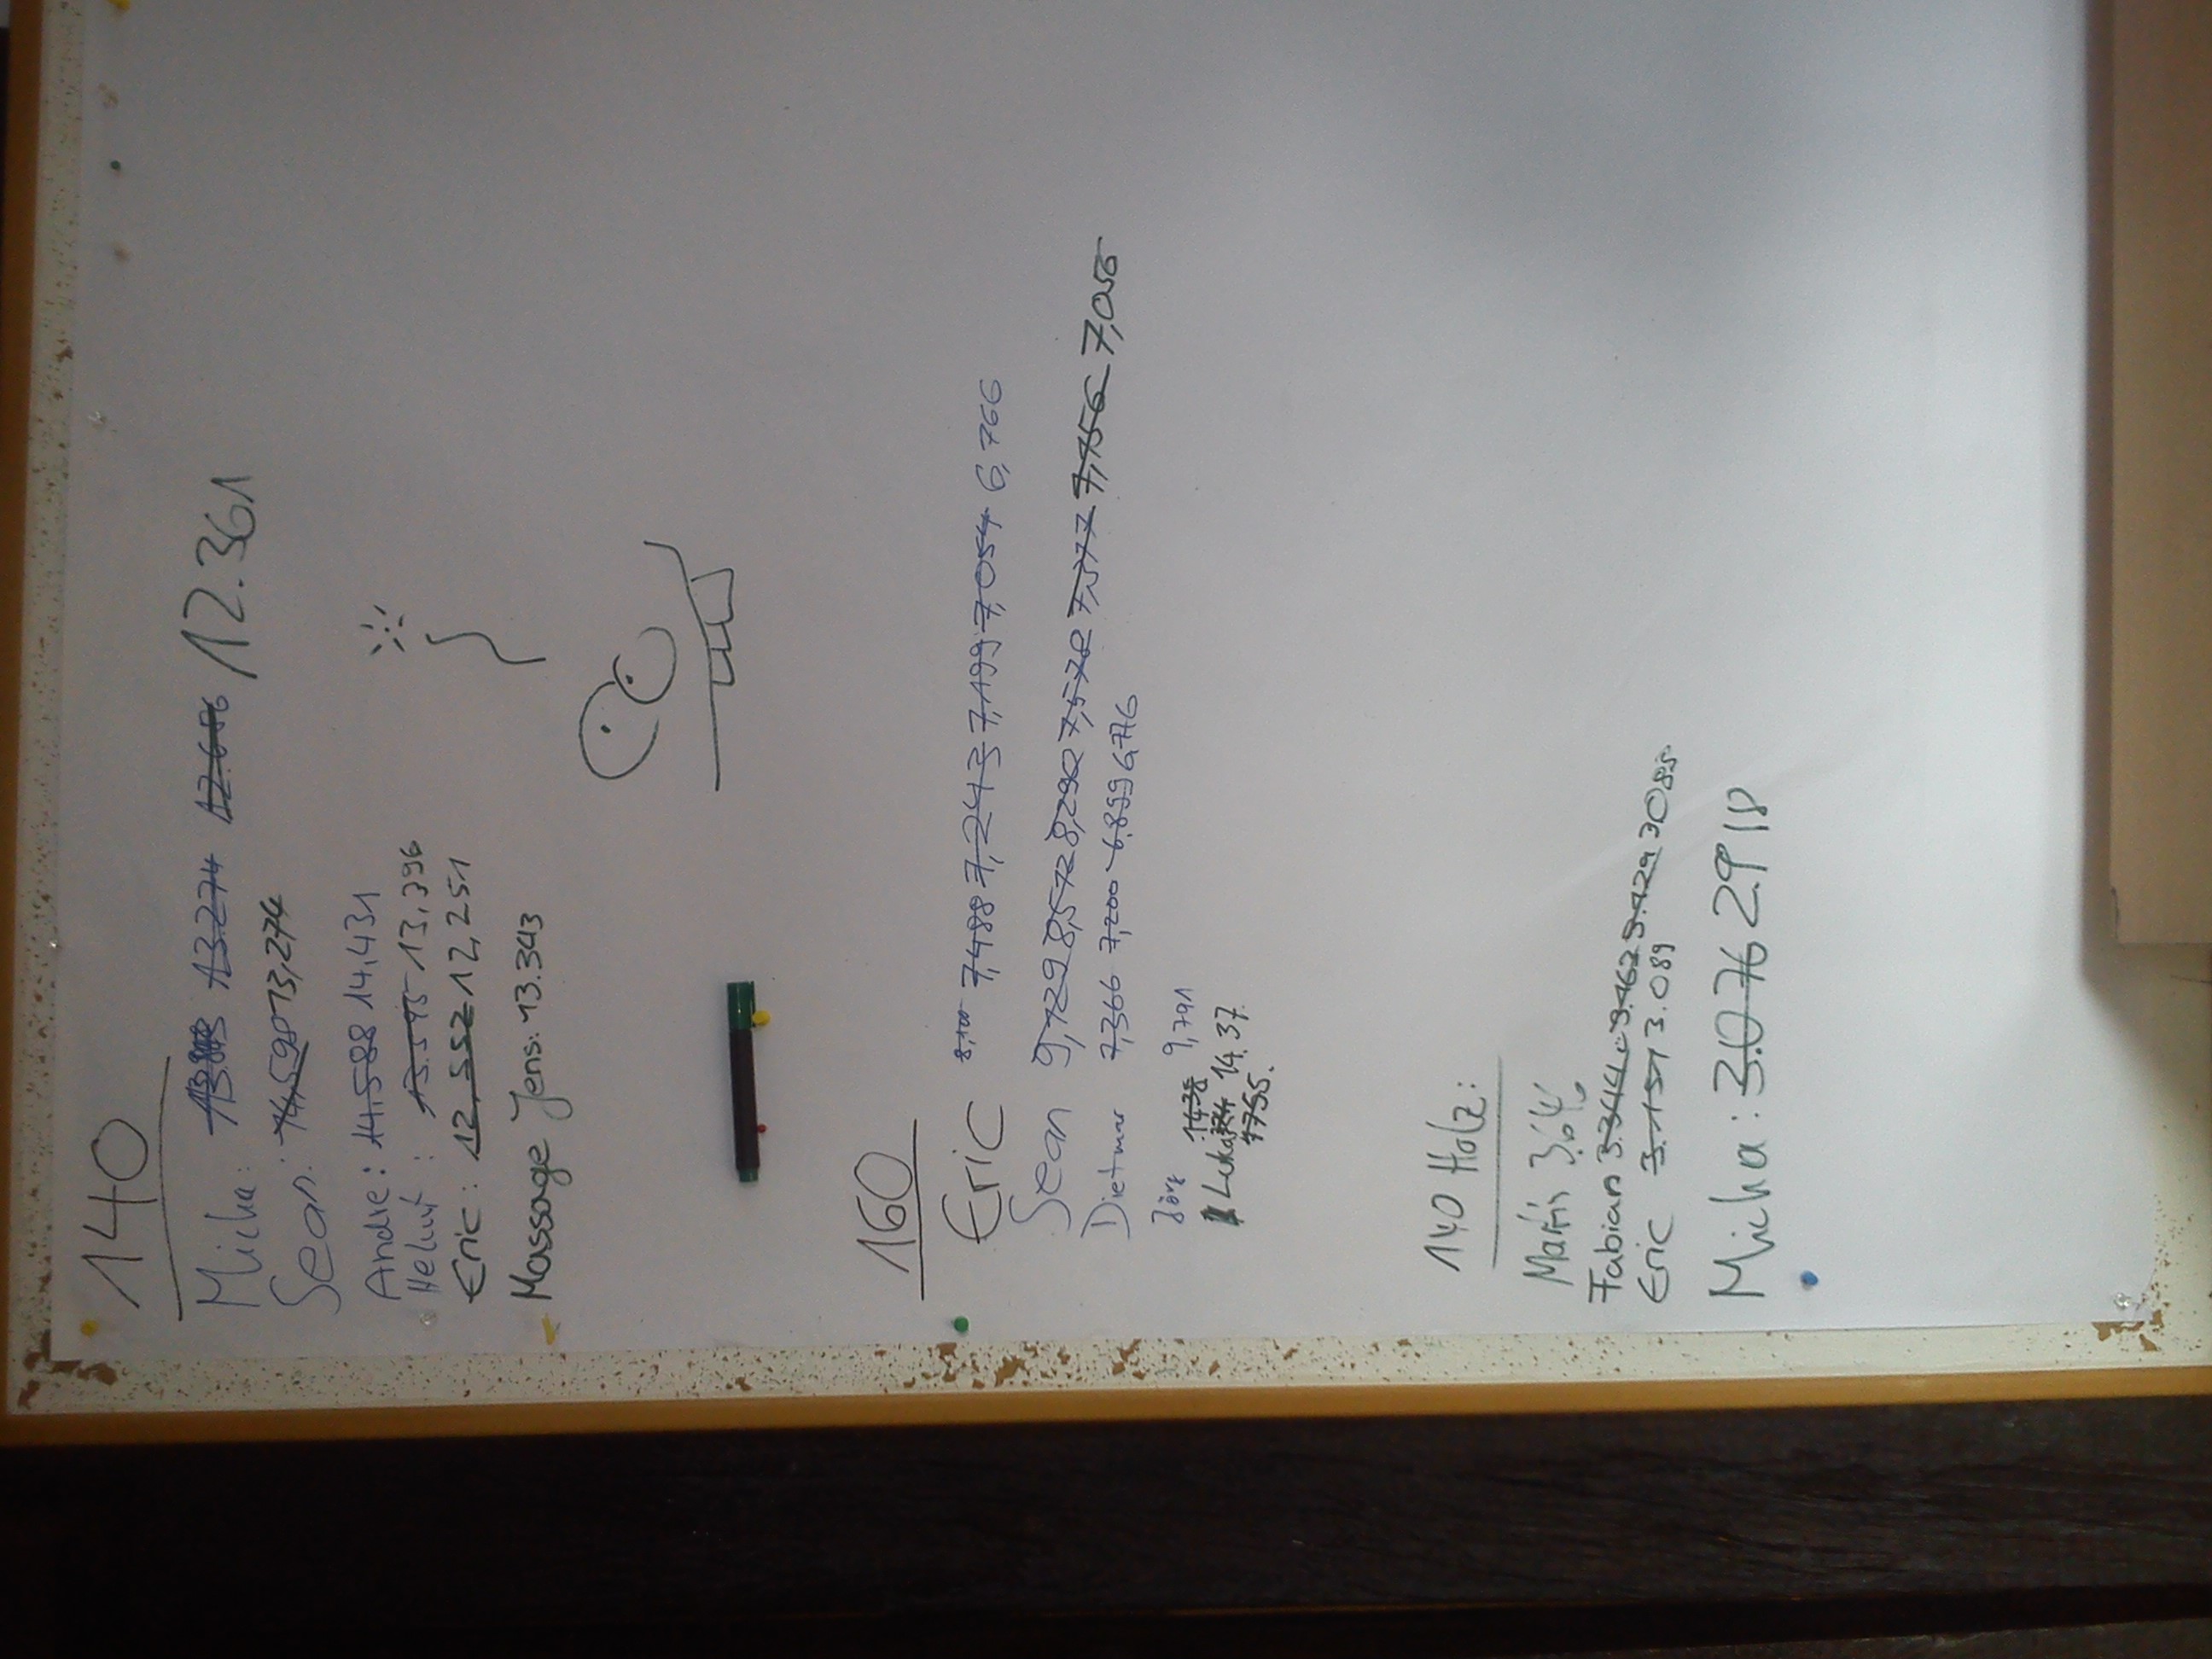 140
Micha: 13.274 12.686 12.361
Sean: 14.590 13,274
Andre: 14.588 14,431
Helmut: 13.545 13,396
Eric: 12,552 12,251
Massage Jens: 13.343
160
Eric 8,100 7,488 7,243 7,199 7,054 6,766
Sean 9,129 8,572 8,292 7,578 7,377 7,156 7,055
Dietmar 7,366 7,200 6,899 6,776
Jörg 9,791
Lukas 14.37
7755.
140 Holz:
Martin
Fabian 3.344 3.162 3.129 3085
Eric 3.151 3.089
Micha: 3.076 2.918